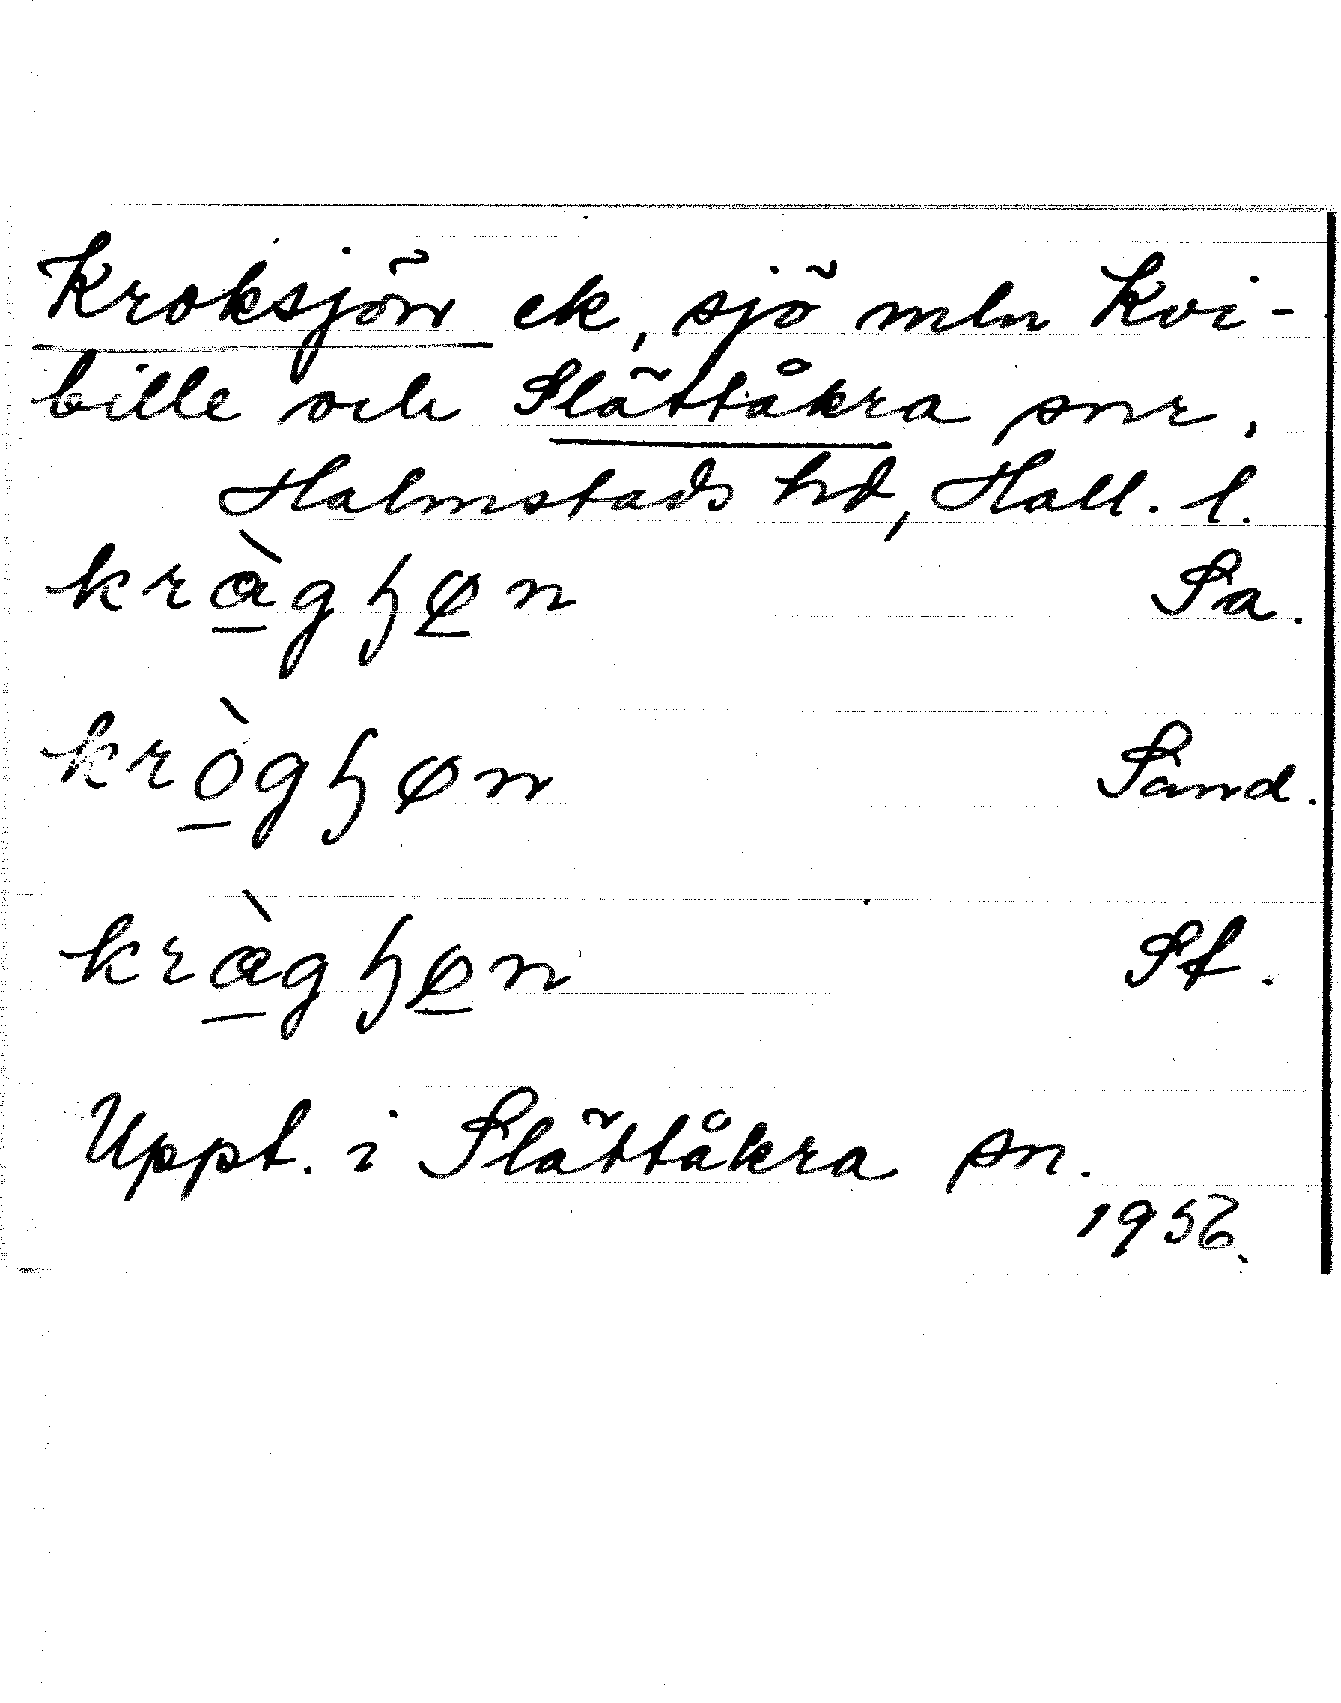 Kroksjön ek, sjö mln Kvi-
bille och Slättåkra snr,
Halmstads hd, Hall. l.
kràgɧøn Sa.
krògɧøn Sand.
kràgɧøn Sf.
Uppt. i Slättåkra sn.
1956.